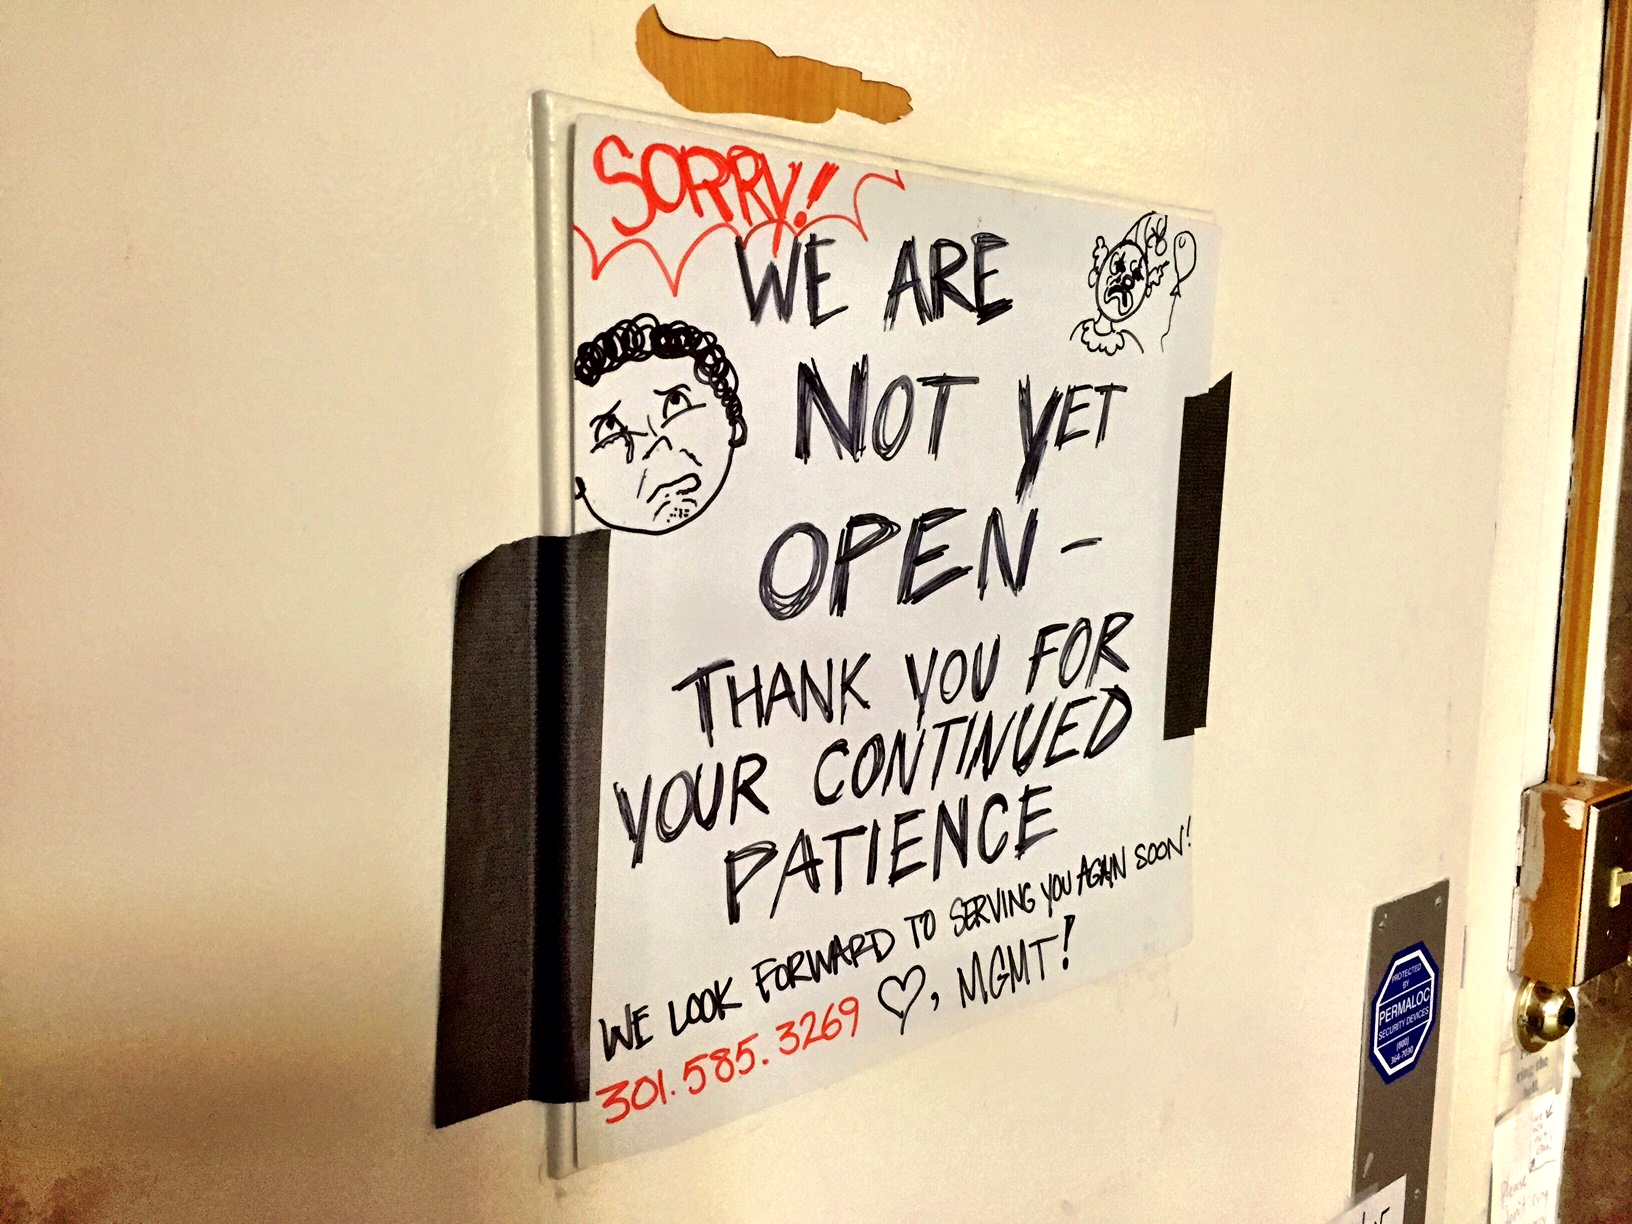 SORRY!
WE ARE
NOT YET
OPEN-
THANK YOU FOR
YOUR CONTINUED
PATIENCE
WE LOOK FORWARD TO SERVING YOU AGAIN SOON!
301.585.3269 ♡, MGMT!
PROTECTED
BY
PERMALOC
SECURITY DEVICES
(800)
364-7030
Please